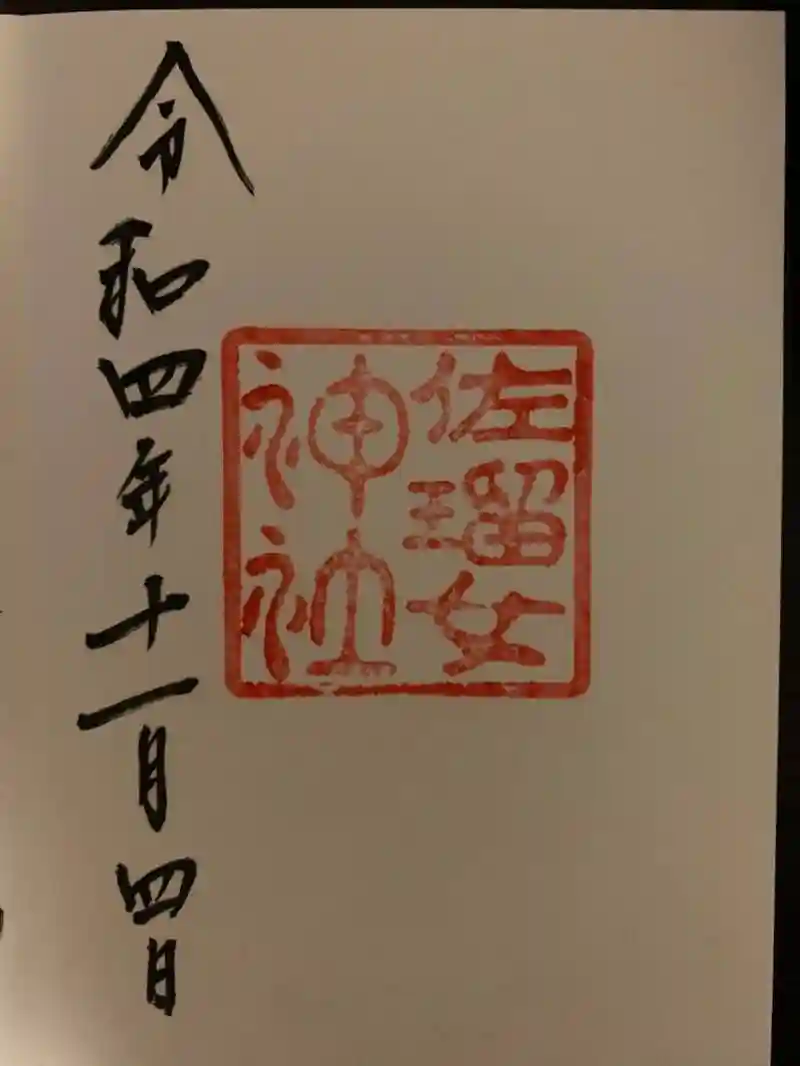 佐瑠女
神社
令和四年十一月四日